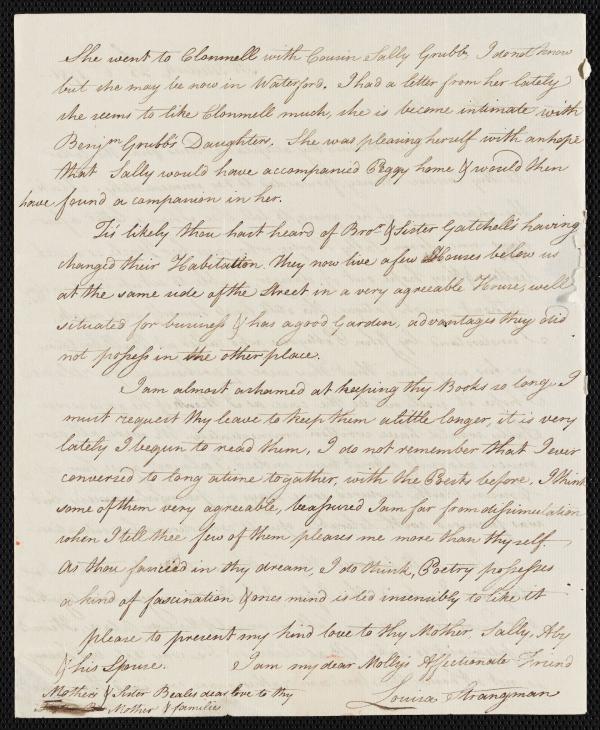 She went to Clonmell with Cousin Sally Grubb, I do not know
but she may be now in Waterford. I had a letter from her lately
she seems to like Clonmell much, she is become intimate with
Benjm Grubb's Daughters. She was pleasing herself with an hope
that Sally would have accompanied Peggy home & would then
have found a companion in her.
Tis likely thou hast heard of Bror & Sister Gatchell's having
changed their Habitation. they now live a few Houses below us
at the same side of the Street in a very agreeable House, well
situated for business & has a good Garden, advantages they did
not possess in the other place.
I am almost ashamed at keeping thy Books so long, I
must request thy leave to keep them a little longer, it is very
lately I begun to read them, I do not remember that I ever
conversed so long a time togather, with the Poets before, I think
some of them very agreeable, be assured I am far from dissimulation
when I tell thee few of them pleases me more than thyself.
As thou fancied in thy dream, I do think, Poetry possesses
a kind of fascination & ones mind is led insensibly to like it
please to present my kind love to thy Mother, Sally, Aby
& his Spouse. I am my dear Molly's Affectionate Friend
Louisa Strangman
Mothers & Sister Beales dear love to thy
Mother & families